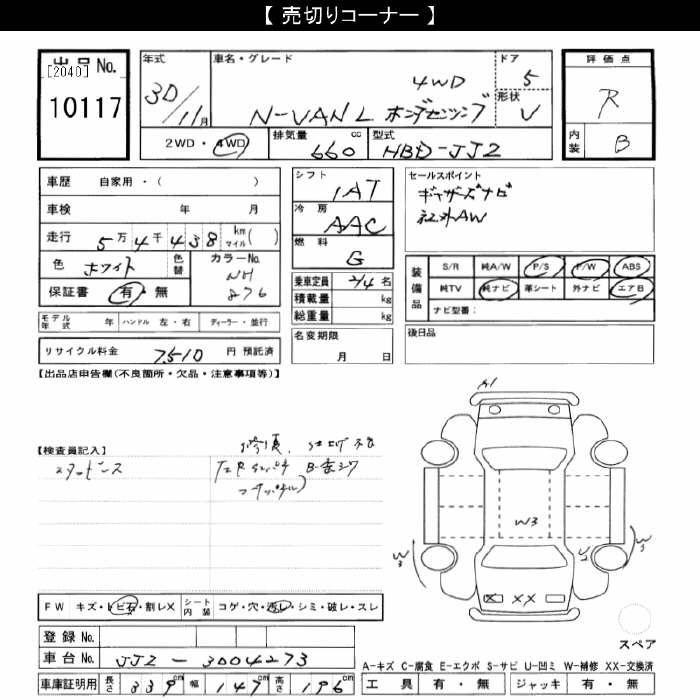 【 売切りコーナー 】
出品No.
[2040]
10117
年式
30/11月
車名・グレード
4WD
N-VAN L ホンダセンシング
ドア
5
形状
V
評価点
R
内装
B
2WD・4WD
排気量
660 cc
型式
HBD-JJ2
車歴 自家用・( )
車検 年 月
走行 5万4千438 km マイル( )
色 ホワイト 色替
カラーNo.
NH
876
保証書 有・無
シフト
1AT
冷房
AAC
燃料
G
乗車定員 2/4 名
積載量 kg
総重量 kg
名変期限
月 日
セールスポイント
ギャザーズナビ
社外AW
装備品
S/R 純A/W P/S P/W ABS
純TV 純ナビ 革シート 外ナビ エアB
ナビ型番:
後日品
モデル年式 年 ハンドル 左・右 ディーラー・並行
リサイクル料金 7,510 円 預託済
【出品店申告欄(不良箇所・欠品・注意事項等)】
【検査員記入】
A1
W3
W3
U2
XX
FW キズ・トビ石・割レX シート内装 コゲ・穴・汚レ・シミ・破レ・スレ
登録No.
車台No. JJ2-3004273
車庫証明用 長さ 339cm 幅 147cm 高さ 196cm
スペア
A-キズ C-腐食 E-エクボ S-サビ U-凹ミ W-補修 XX-交換済
工具 有・無 ジャッキ 有・無